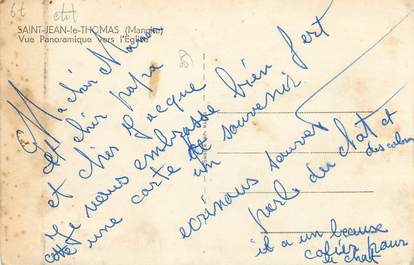 SAINT-JEAN-le-THOMAS (Manche)
Vue Panoramique vers l'Eglise
Ma chèr Maman
et chèr papa
et chèr Jacque
Je vous embrasse bien fort
cette une carte un souvenir
ecrinous souver
parle du chat et
des
il a un beause
colier pour
le chat